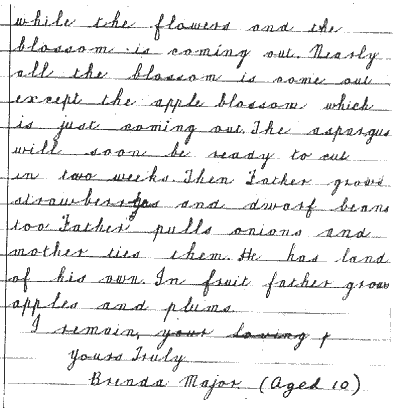 while the flowers and the
blossom is coming out. Nearly
all the blossom is come out
except the apple blossom which
is just coming out. The aspargus
will soon be ready to cut
in two weeks. Then Father grows
strawberrys and dwarf beans
too Father pulls onions and
mother ties them. He has land
of his own. In fruit father grows
apples and plums.
I remain, your loving
Yours Truly
Brenda Major (Aged 10)